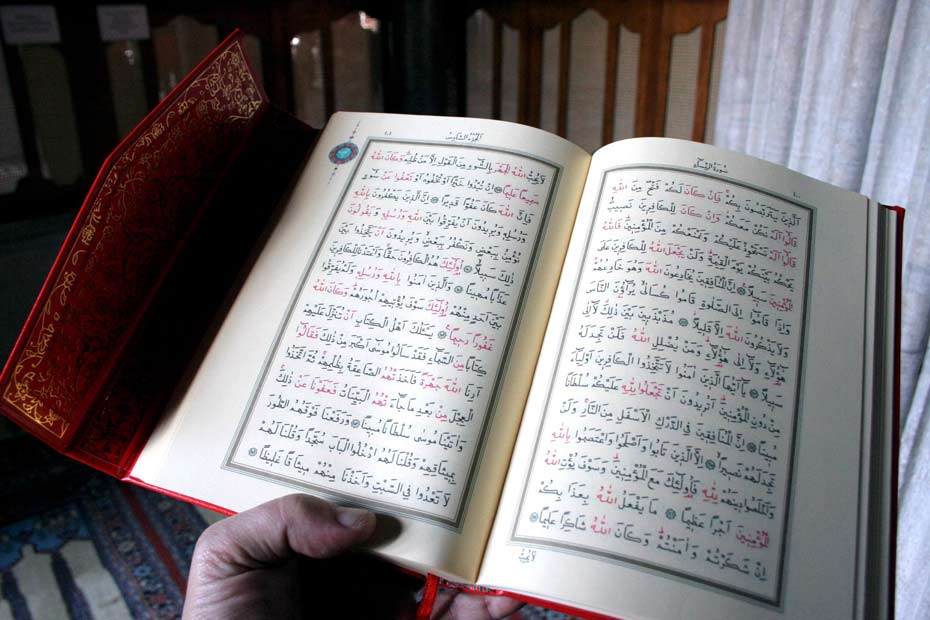 سُورَةُ النِّسَاءِ
اَلَّذِينَ يَتَرَبَّصُونَ بِكُمْ فَاِنْ كَانَ لَكُمْ فَتْحٌ مِنَ اللهِ
قَالُوا اَلَمْ نَكُنْ مَعَكُمْ وَاِنْ كَانَ لِلْكَافِرِينَ نَصِيبٌ
قَالُوا اَلَمْ نَسْتَحْوِذْ عَلَيْكُمْ وَنَمْنَعْكُمْ مِنَ الْمُؤْمِنِينَ فَاللهُ
يَحْكُمُ بَيْنَكُمْ يَوْمَ الْقِيٰمَةِ وَلَنْ يَجْعَلَ اللهُ لِلْكَافِرِينَ عَلَى
الْمُؤْمِنِينَ سَبِيلًا اِنَّ الْمُنَافِقِينَ يُخَادِعُونَ اللهَ وَهُوَ خَادِعُهُمْ
وَاِذَا قَامُوا اِلَى الصَّلٰوةِ قَامُوا كُسَالٰى يُرَاؤُنَ النَّاسَ
وَلَا يَذْكُرُونَ اللهَ اِلَّا قَلِيلًا مُذَبْذَبِينَ بَيْنَ ذٰلِكَ لَا اِلٰى
هٰؤُلَاءِ وَلَا اِلٰى هٰؤُلَاءِ وَمَنْ يُضْلِلِ اللهُ فَلَنْ تَجِدَ لَهُ
سَبِيلًا يَا اَيُّهَا الَّذِينَ اٰمَنُوا لَا تَتَّخِذُوا الْكَافِرِينَ اَوْلِيَاءَ
مِنْ دُونِ الْمُؤْمِنِينَ اَتُرِيدُونَ اَنْ تَجْعَلُوا لِلهِ عَلَيْكُمْ سُلْطَانًا
مُبِينًا اِنَّ الْمُنَافِقِينَ فِي الدَّرْكِ الْاَسْفَلِ مِنَ النَّارِ وَلَنْ
تَجِدَ لَهُمْ نَصِيرًا اِلَّا الَّذِينَ تَابُوا وَاَصْلَحُوا وَاعْتَصَمُوا بِاللهِ
وَاَخْلَصُوا دِينَهُمْ لِلهِ فَاُولٰئِكَ مَعَ الْمُؤْمِنِينَ وَسَوْفَ يُؤْتِ اللهُ
الْمُؤْمِنِينَ اَجْرًا عَظِيمًا مَا يَفْعَلُ اللهُ بِعَذَابِكُمْ
اِنْ شَكَرْتُمْ وَاٰمَنْتُمْ وَكَانَ اللهُ شَاكِرًا عَلِيمًا
لَا يُحِبُّ
اَلْجُزْءُ السَّادِسُ ١٠١
لَا يُحِبُّ اللهُ الْجَهْرَ بِالسُّوءِ مِنَ الْقَوْلِ اِلَّا مَنْ ظُلِمَ وَكَانَ اللهُ
سَمِيعًا عَلِيمًا اِنْ تُبْدُوا خَيْرًا اَوْ تُخْفُوهُ اَوْ تَعْفُوا عَنْ سُوءٍ
فَاِنَّ اللهَ كَانَ عَفُوًّا قَدِيرًا اِنَّ الَّذِينَ يَكْفُرُونَ بِاللهِ
وَرُسُلِهِ وَيُرِيدُونَ اَنْ يُفَرِّقُوا بَيْنَ اللهِ وَرُسُلِهِ وَيَقُولُونَ
نُؤْمِنُ بِبَعْضٍ وَنَكْفُرُ بِبَعْضٍ وَيُرِيدُونَ اَنْ يَتَّخِذُوا بَيْنَ
ذٰلِكَ سَبِيلًا اُولٰئِكَ هُمُ الْكَافِرُونَ حَقًّا وَاَعْتَدْنَا لِلْكَافِرِينَ
عَذَابًا مُهِينًا وَالَّذِينَ اٰمَنُوا بِاللهِ وَرُسُلِهِ وَلَمْ يُفَرِّقُوا
بَيْنَ اَحَدٍ مِنْهُمْ اُولٰئِكَ سَوْفَ يُؤْتِيهِمْ اُجُورَهُمْ وَكَانَ اللهُ
غَفُورًا رَحِيمًا يَسْـَٔلُكَ اَهْلُ الْكِتَابِ اَنْ تُنَزِّلَ عَلَيْهِمْ
كِتَابًا مِنَ السَّمَاءِ فَقَدْ سَاَلُوا مُوسٰى اَكْبَرَ مِنْ ذٰلِكَ فَقَالُوا
اَرِنَا اللهَ جَهْرَةً فَاَخَذَتْهُمُ الصَّاعِقَةُ بِظُلْمِهِمْ ثُمَّ اتَّخَذُوا
الْعِجْلَ مِنْ بَعْدِ مَا جَاءَتْهُمُ الْبَيِّنَاتُ فَعَفَوْنَا عَنْ ذٰلِكَ
وَاٰتَيْنَا مُوسٰى سُلْطَانًا مُبِينًا وَرَفَعْنَا فَوْقَهُمُ الطُّورَ
بِمِيثَاقِهِمْ وَقُلْنَا لَهُمُ ادْخُلُوا الْبَابَ سُجَّدًا وَقُلْنَا لَهُمْ
لَا تَعْدُوا فِي السَّبْتِ وَاَخَذْنَا مِنْهُمْ مِيثَاقًا غَلِيظًا